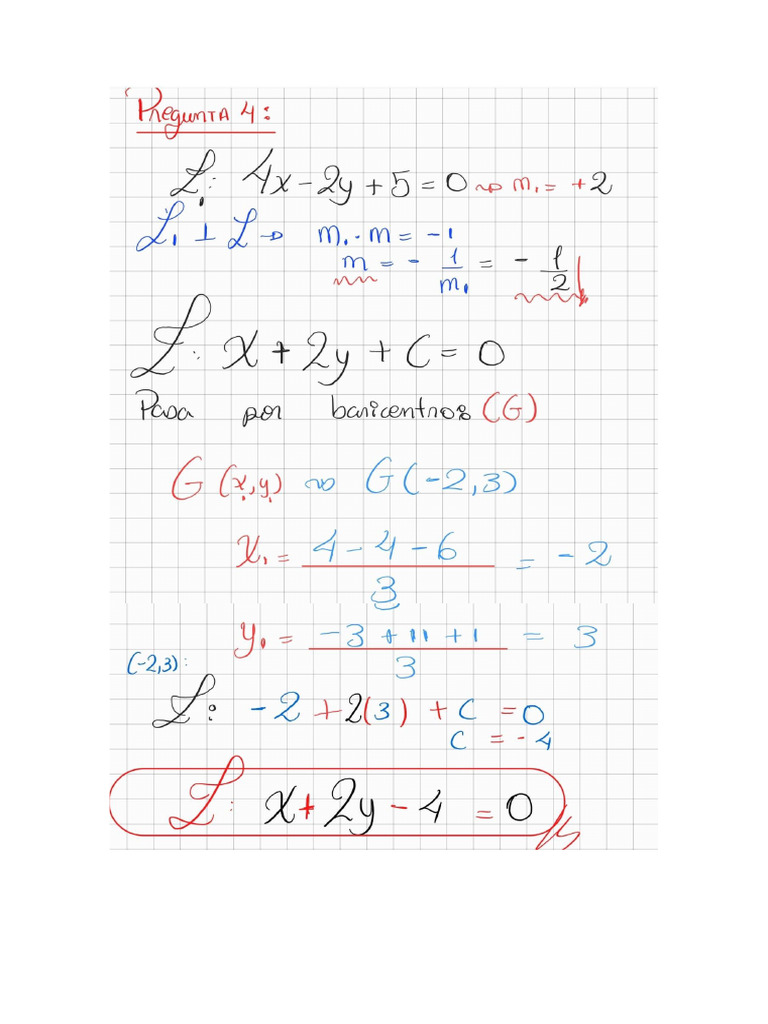 Pregunta 4:
L₁: 4x - 2y + 5 = 0 ⇝ m₁ = +2
L₁ ⊥ L → m₁ · m = -1
m = - 1/m₁ = - 1/2
L: x + 2y + C = 0
Pasa por baricentro: (G)
G (x₁, y₁) ⇝ G(-2, 3)
x₁ = (4 - 4 - 6)/3 = -2
y₁ = (-3 + 11 + 1)/3 = 3
(-2,3):
L: -2 + 2(3) + C = 0
C = -4
L: x + 2y - 4 = 0